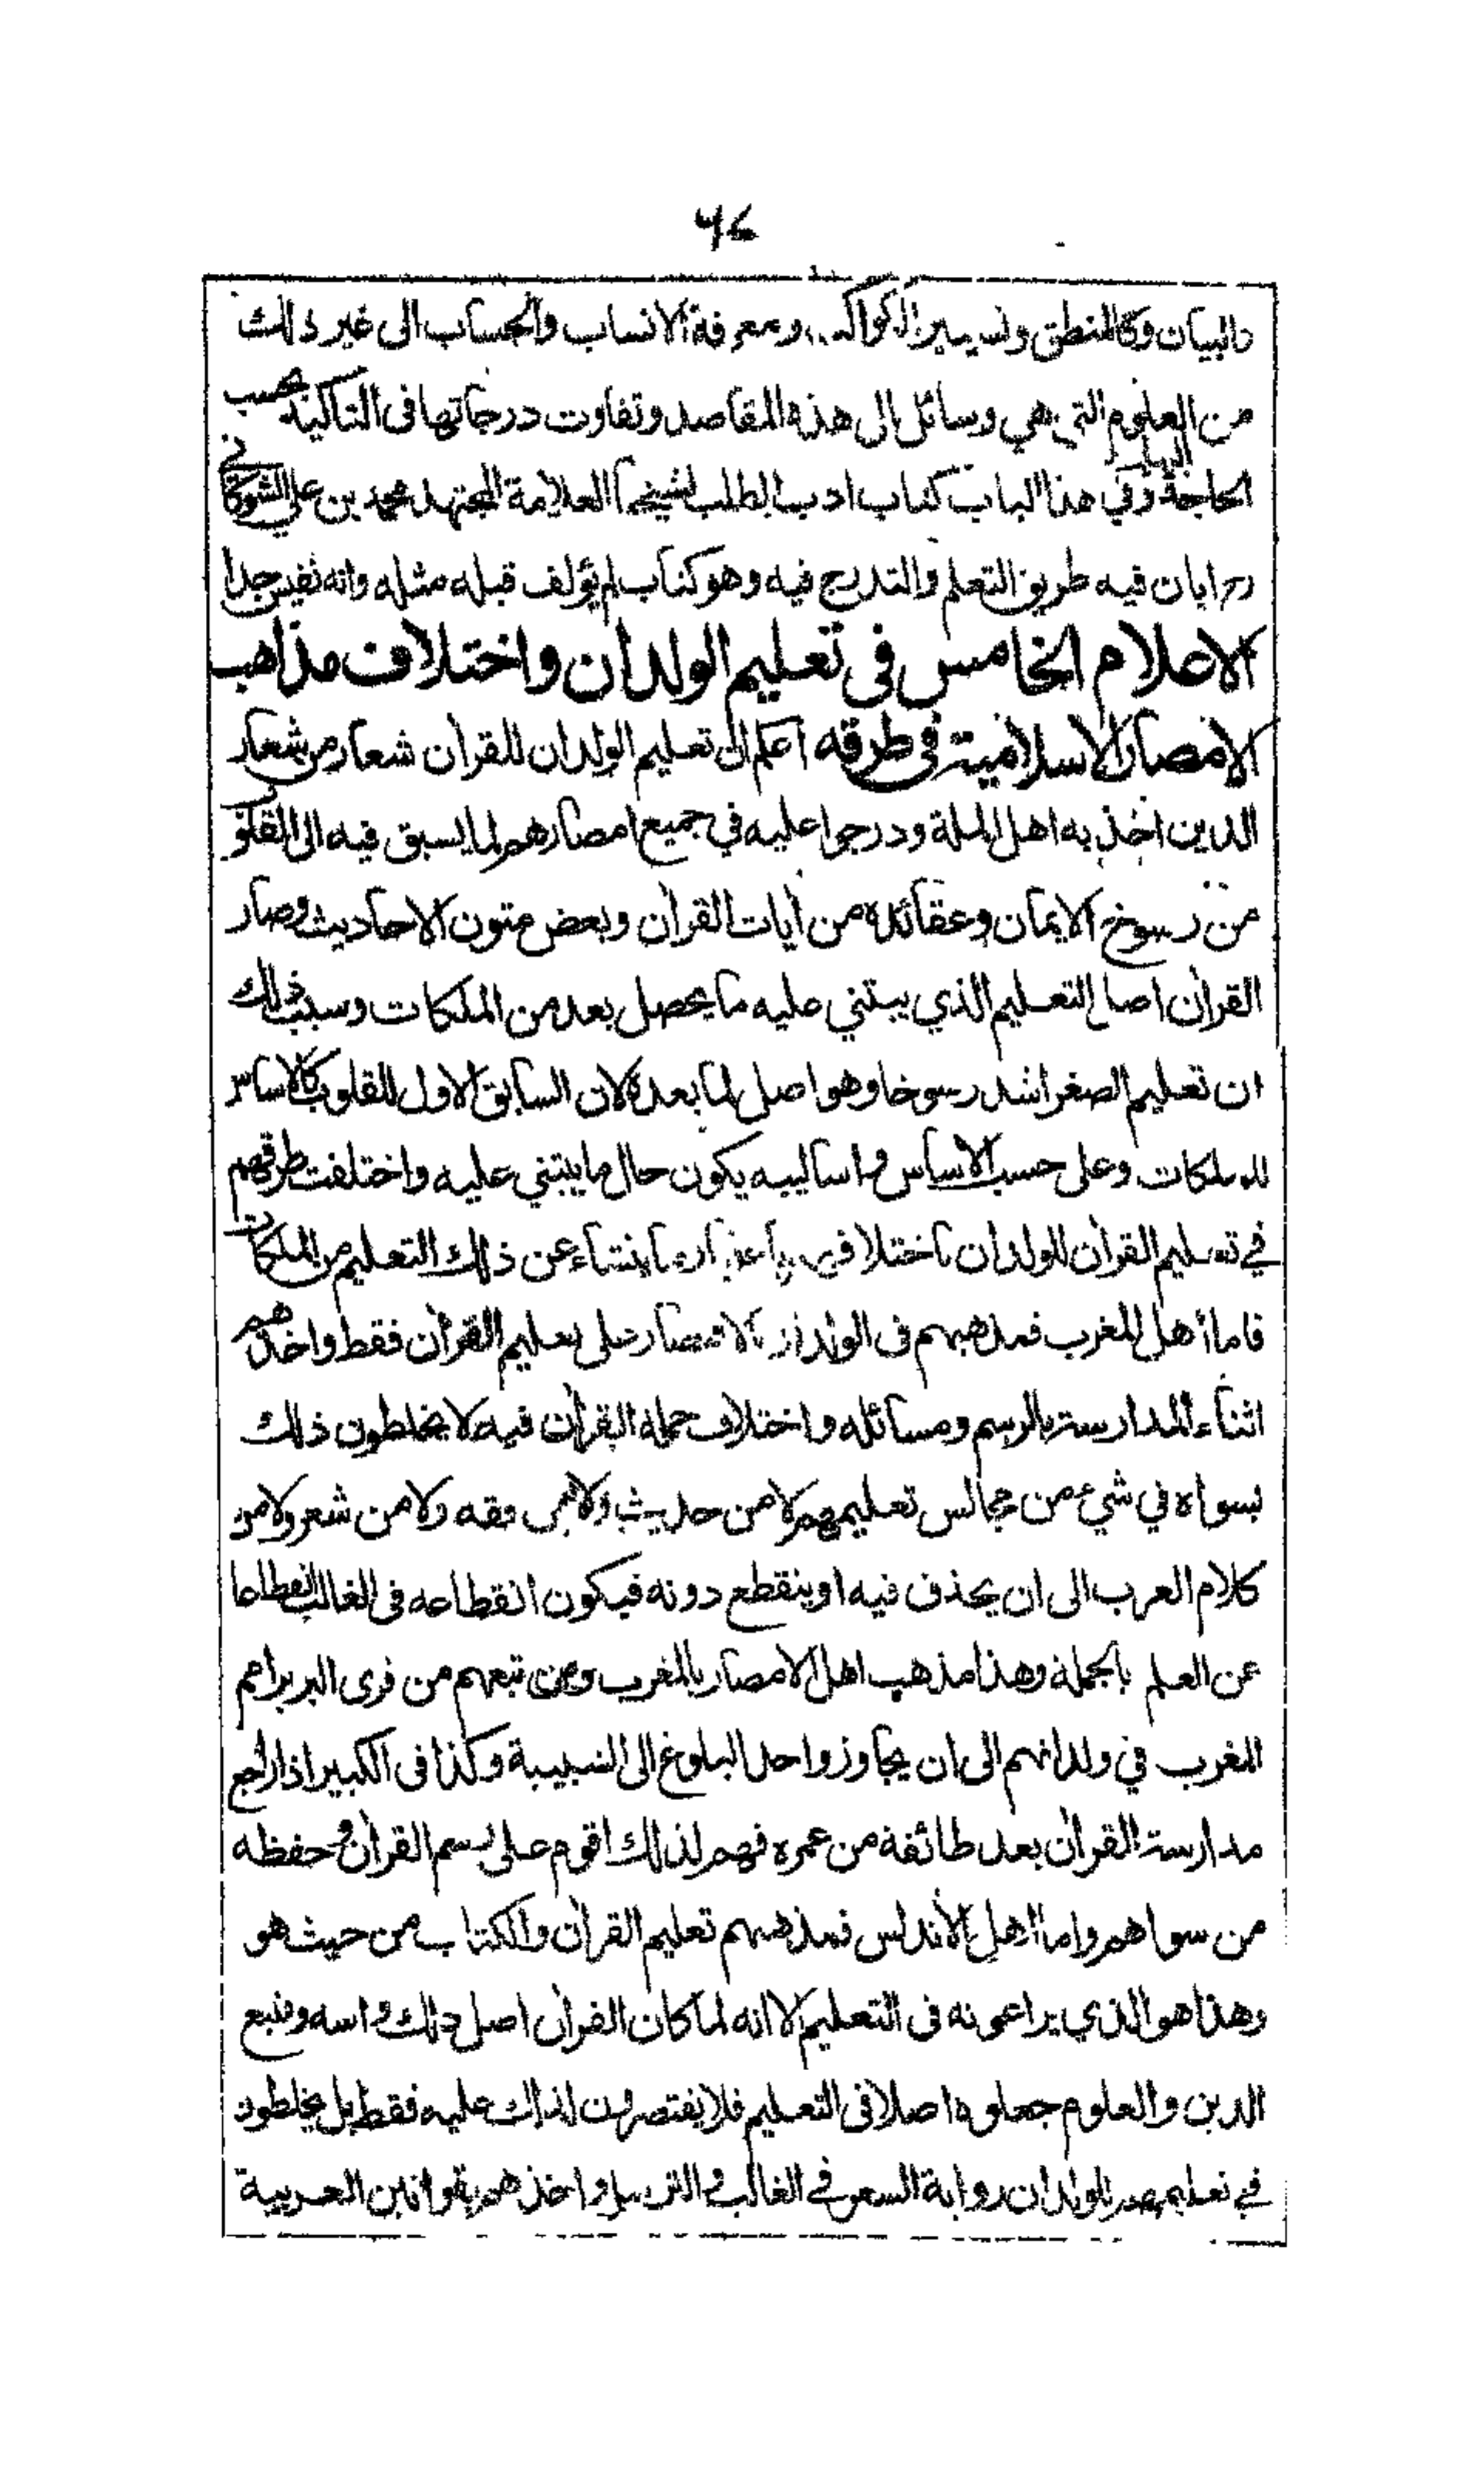 ٧٤
والبيان وكالمنطق وتسيير الكواكب ومعرفة الانساب والحساب الى غير ذلك
من العلوم التي هي وسائل الى هذه المقاصد وتفاوت درجاتها فى التاكيد بحسب
الحاجة وفي هذا الباب كتاب ادب الطلب لشيخنا العلامة المجتهد محمد بن علي الشوكاني
ابان فيه طريق التعلم والتدريج فيه وهو كتاب لم يؤلف قبله مثله وانه نفيس جدا
الاعلام الخامس فى تعليم الولدان واختلاف مذاهب
الامصار الاسلامية فى طرقه اعلم ان تعليم الولدان للقرآن شعار من شعار
الدين اخذ به اهل الملة ودرجوا عليه في جميع امصارهم لما يسبق فيه الى القلوب
من رسوخ الايمان وعقائده من آيات القرآن وبعض متون الاحاديث وصار
القرآن اصل التعليم الذي يبتني عليه ما يحصل بعد من الملكات وسبب ذلك
ان تعليم الصغر اشد رسوخا وهو اصل لما بعده لان السابق الاول للقلوب كالاساس
للملكات وعلى حسب الاساس واساليبه يكون حال ما يبتني عليه واختلفت طرقهم
في تعليم القرآن للولدان باختلافهم باعتبار ما ينشاء عن ذلك التعليم من الملكات
فاما أهل المغرب فمذهبهم فى الولدان الاقتصار على تعليم القرآن فقط واخذهم
اثناء المدارسة بالرسم ومسائله واختلاف حملة القرآن فيه لا يخلطون ذلك
بسواه في شيء من مجالس تعليمهم لا من حديث ولا من فقه ولا من شعر ولا من
كلام العرب الى ان يحذف فيه او ينقطع دونه فيكون انقطاعه فى الغالب انقطاعا
عن العلم بالجملة وهذا مذهب اهل الامصار بالمغرب ومن تبعهم من قرى البربر امم
المغرب في ولدانهم الى ان يجاوزوا حد البلوغ الى الشبيبة وكذا فى الكبير اذا راجع
مدارسة القرآن بعد طائفة من عمره فهم لذلك اقوم على رسم القرآن وحفظه
من سواهم واما اهل الأندلس فمذهبهم تعليم القرآن والكتاب من حيث هو
وهذا هو الذي يراعونه فى التعليم الا انه لما كان القرآن اصل ذلك واسه ومنبع
الدين والعلوم جعلوه اصلا فى التعليم فلا يقتصرون لذلك عليه فقط بل يخلطون
في تعليمهم للولدان رواية الشعر في الغالب والترسل واخذهم بقوانين العربية